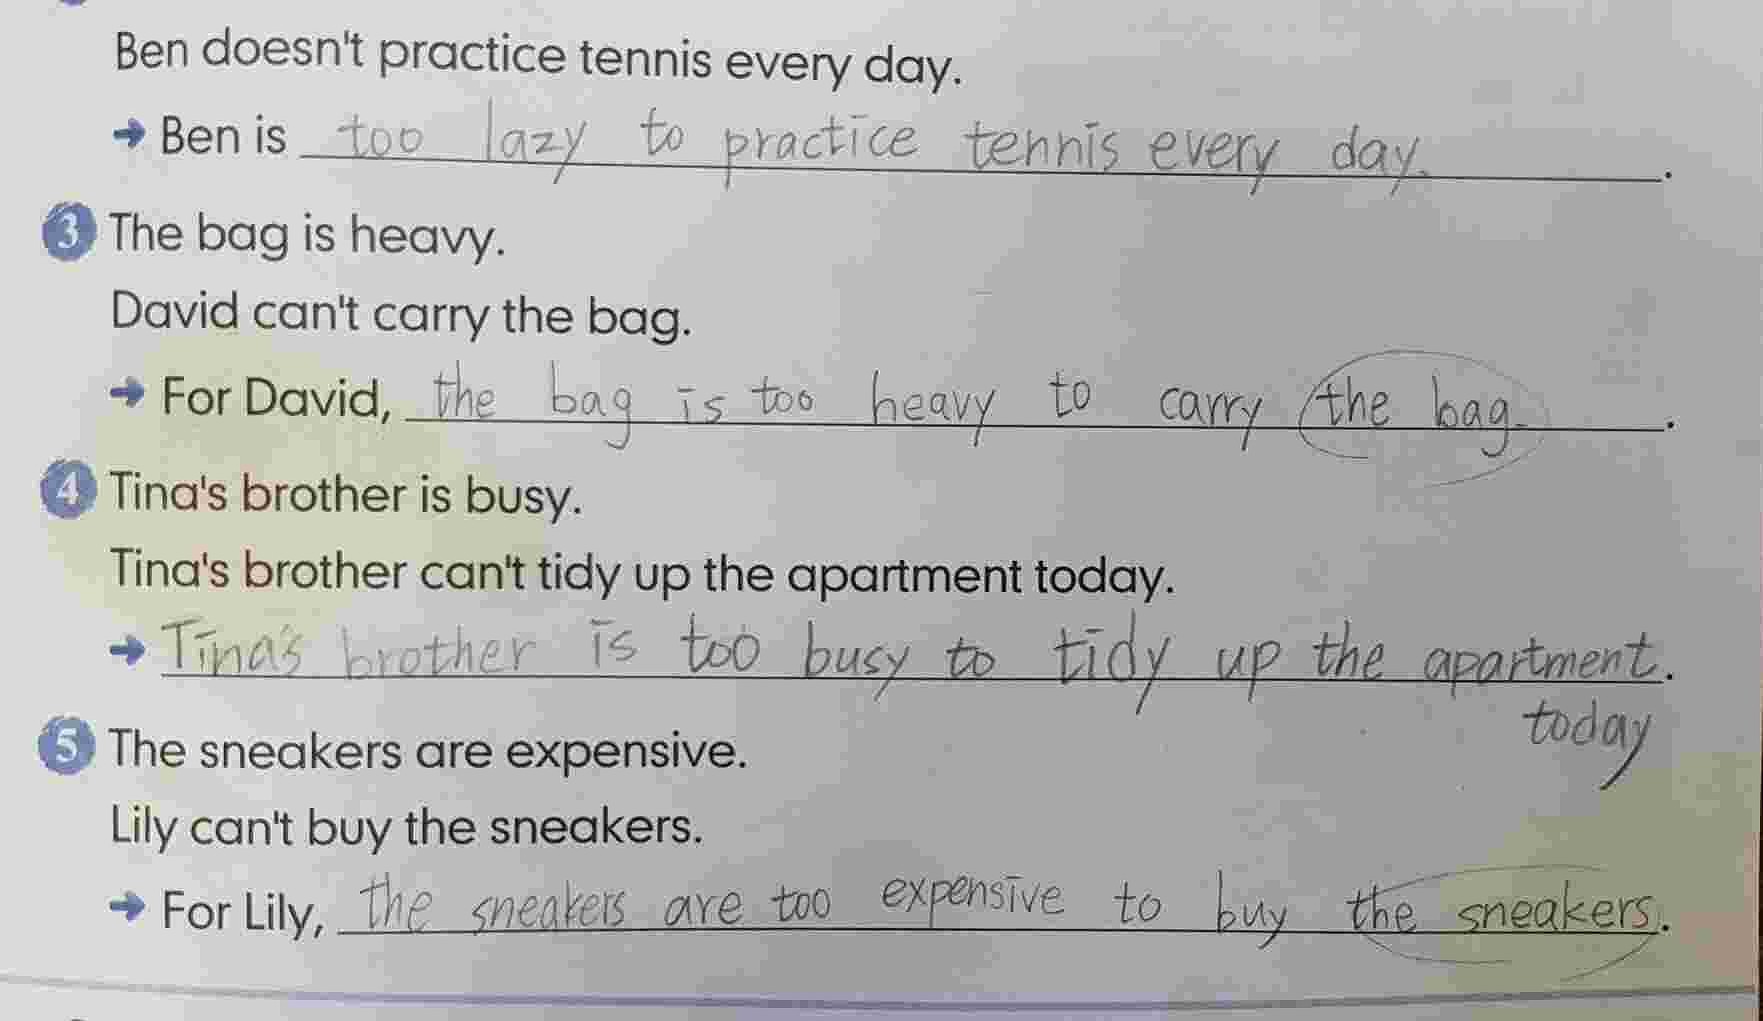 Ben doesn't practice tennis every day.
➔ Ben is too lazy to practice tennis every day. .
3 The bag is heavy.
David can't carry the bag.
➔ For David, the bag is too heavy to carry the bag. .
4 Tina's brother is busy.
Tina's brother can't tidy up the apartment today.
➔ Tina's brother is too busy to tidy up the apartment.
today
5 The sneakers are expensive.
Lily can't buy the sneakers.
➔ For Lily, the sneakers are too expensive to buy the sneakers.